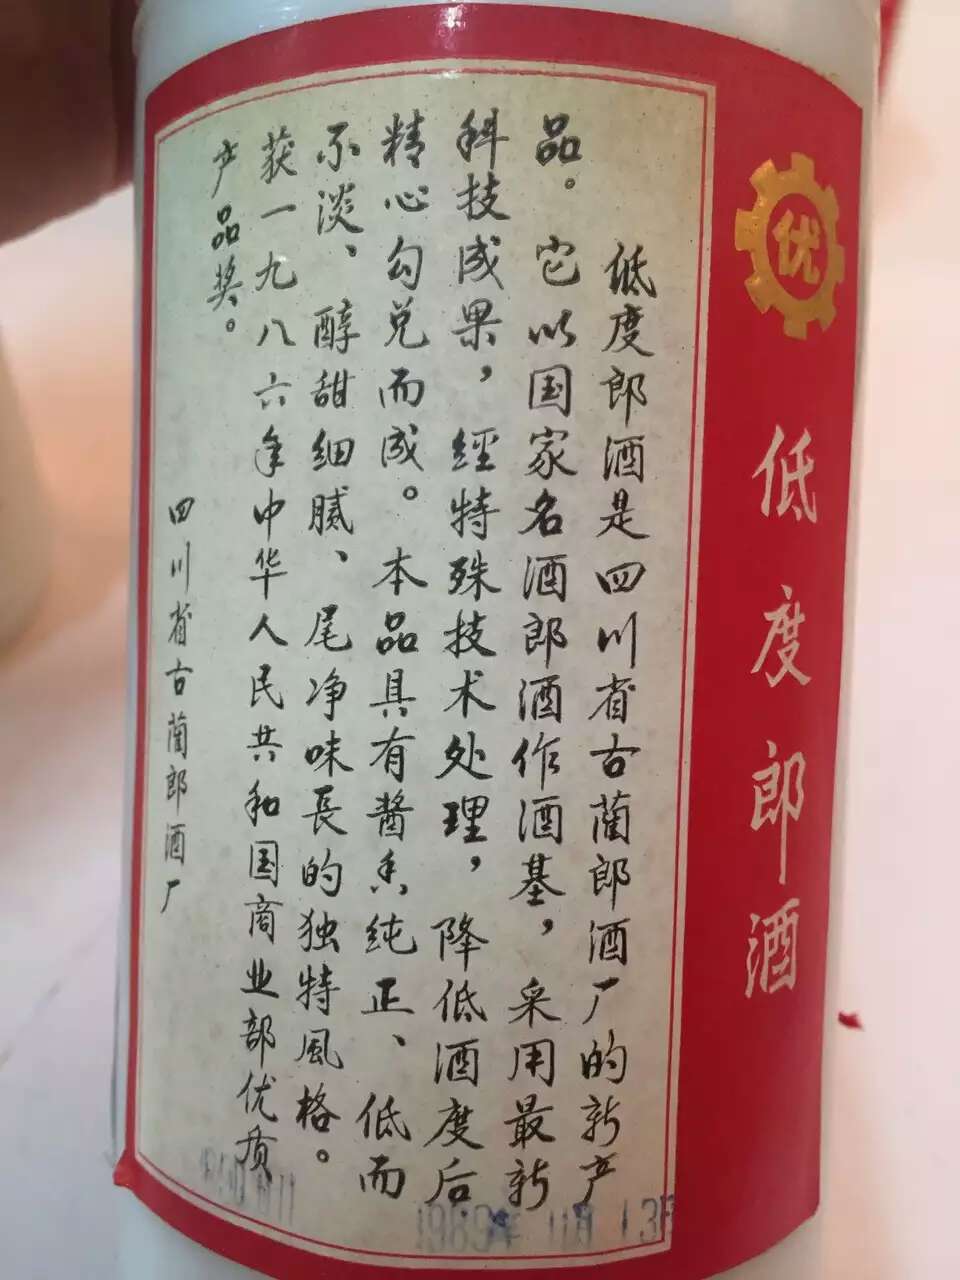 低度郎酒是四川省古蔺郎酒厂的新产
品。它以国家名酒郎酒作酒基，采用最新
科技成果，經特殊技术处理，降低酒度后
精心勾兑而成。本品具有酱香纯正、低而
不淡、醇甜细腻、尾净味長的独特風格。
获一九八六年中华人民共和国商业部优质
产品奖。
四川省古蔺郎酒厂
优
低度郎酒
1989年11月13日